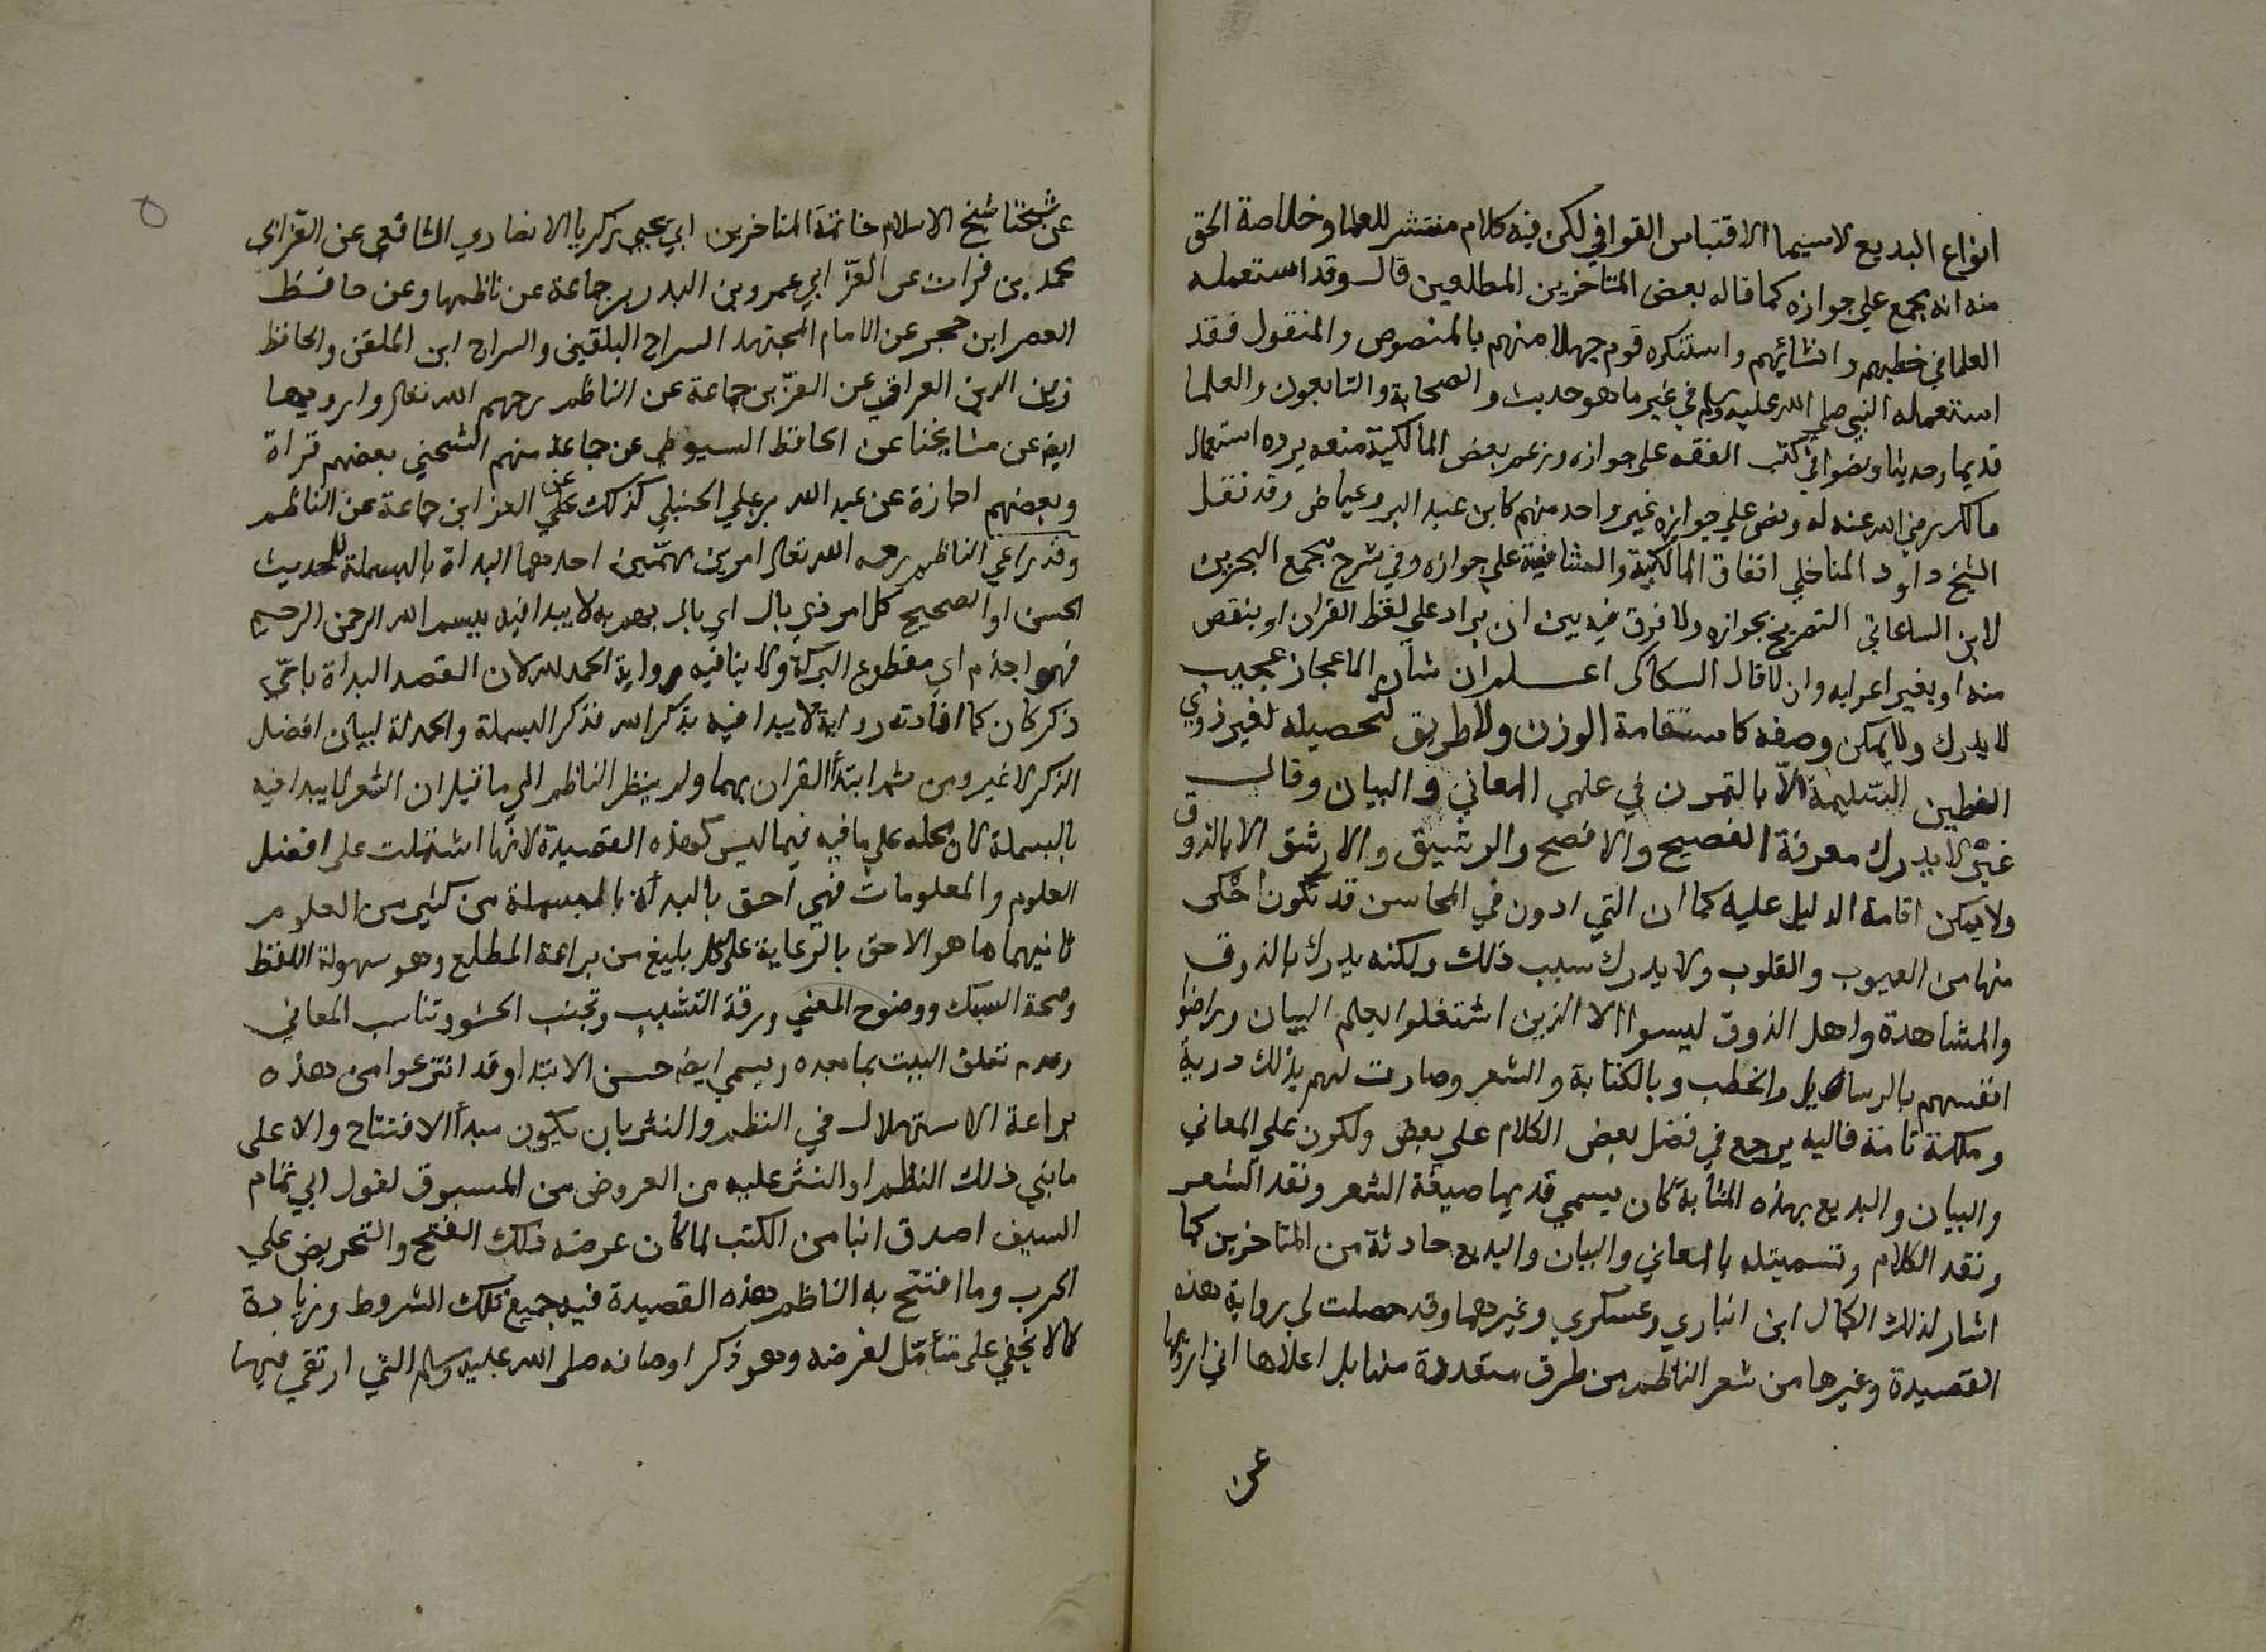 انواع البديع لاسيما الاقتباس القوافي لكن فيه كلام منتشر للعلما وخلاصة الحق
منه انه يجمع علي جوازه كما قاله بعض المتاخرين المطلعين قال وقد استعمله
العلما في خطبهم وانشائهم واستنكره قوم جهلا منهم بالمنصوص والمنقول فقد
استعمله النبي صلي الله عليه وسلم في غير ما هو حديث والصحابة والتابعون والعلما
قديما وحديثا ونصوا في كتب الفقه علي جوازه وزعم بعض المالكية منعه يرده استعمال
مالك رضي الله عنه له ونص علي جوازه غير واحد منهم كابن عبد البر وعياض وقد نقل
الشيخ داود المناخلي اتفاق المالكية والشافعية علي جوازه وفي شرح مجمع البحرين
لابن الساعاتي التصريح بجوازه ولا فرق فيه بين ان يراد علي لفظ القران او ينقص
منه او يغير اعرابه وان لا قال السكاكي اعلم ان شان الاعجاز عجيب
لا يدرك ولا يمكن وصفه كاستقامة الوزن ولا طريق لتحصيله لغير ذوي
الفطين السليمة الّا بالتمرن في علمي المعاني والبيان وقال
غيره لا يدرك معرفة الفصيح والافصح والرشيق والارشق الا بالذوق
ولا يمكن اقامة الدليل عليه كما ان التي ادون في المحاسن قد تكون احكى
منها من العيوب والقلوب ولا يدرك سبب ذلك ولكنه يدرك بالذوق
والمشاهدة واهل الذوق ليسوا الا الذين اشتغلوا بعلم البيان وراضوا
انفسهم بالرسائل والخطب وبالكتابة والشعر وصارت لهم بذلك دربة
وملكة تامة فاليه يرجع في فضل بعض الكلام علي بعض ولكون علي المعاني
والبيان والبديع بهذه المثابة كان يسمي قديما صيغة الشعر ونقد الشعر
ونقد الكلام وتسميته بالمعاني والبيان والبديع حادثة من المتاخرين كما
اشار لذلك الكمال ابن انباري وعسكري وغيرهما وقد حصلت لي رواية هذه
القصيدة وغيرها من شعر الناظم من طرق متعددة منها بل اعلاها اني ارويها
عن
عن شيخنا شيخ الاسلام خاتمة المتاخرين ابي يحيي زكريا الانصاري الشافعي عن العز ابي
محمد بن فرات عن العزّ ابي عمرو بن البدر بن جماعة عن ناظمها وعن حافظ
العصر ابن حجر عن الامام المجتهد السراج البلقيني والسراج ابن الملقن والحافظ
زين الدين العراقي عن العزّ بن جماعة عن الناظم رحمهم الله تعالي وارويها
ايض عن مشايخنا عن الحافظ السيوطي عن جماعة منهم الشمني بعضهم قراة
وبعضهم اجازة عن عبد الله بن علي الحنبلي كذلك عن العز ابن جماعة عن الناظم
وقد راعي الناظم رحمه الله تعالي امرين مهمّين احدهما البداة بالبسملة للحديث
الحسن او الصحيح كل امر ذي بال اي بال يهمّ به لا يبدا فيه ببسم الله الرحمن الرحيم
فهو اجذم اي مقطوع البركة ولا ينافيه رواية الحمد لله لان القصد البداة باي
ذكر كان كما افادته رواية لا يبدا فيه بذكر الله فذكر البسملة والحمدلة لبيان افضل
الذكر لا غير ومن ثم ابتدأ القران بهما ولم ينظر الناظم الي ما قيل ان الشعر لا يبدا فيه
بالبسملة لان محله علي ما فيه فيما ليس كهذه القصيدة لانها اشتملت علي افضل
العلوم والمعلومات فهي احق بالبدأة بالبسملة من كثير من العلوم
ثانيهما ما هو الاحق بالرعاية علي كل بليغ من براعة المطلع وهو سهولة اللفظ
وصحة السبك ووضوح المعني ورقة التشبيب وتجنب الحشو وتناسب المعاني
وعدم تعلق البيت بما بعده ويسمي ايض حسن الابتدا وقد انتزعوا من هذه
براعة الاستهلال في النظم والنثر بان يكون مبدأ الافتتاح والاعلى
ما بني ذلك النظم او النثر عليه من العروض من المسبوق لقول ابي تمام
السيف اصدق انبا من الكتب لما كان عرضه ذلك الفتح والتحريض علي
الحرب وما افتتح به الناظم هذه القصيدة فيه جميع تلك الشروط وزيادة
كما لا يخفي علي متأمّل لغرضه وهو ذكر اوصافه صلي الله عليه وسلم التي ارتقي فيها